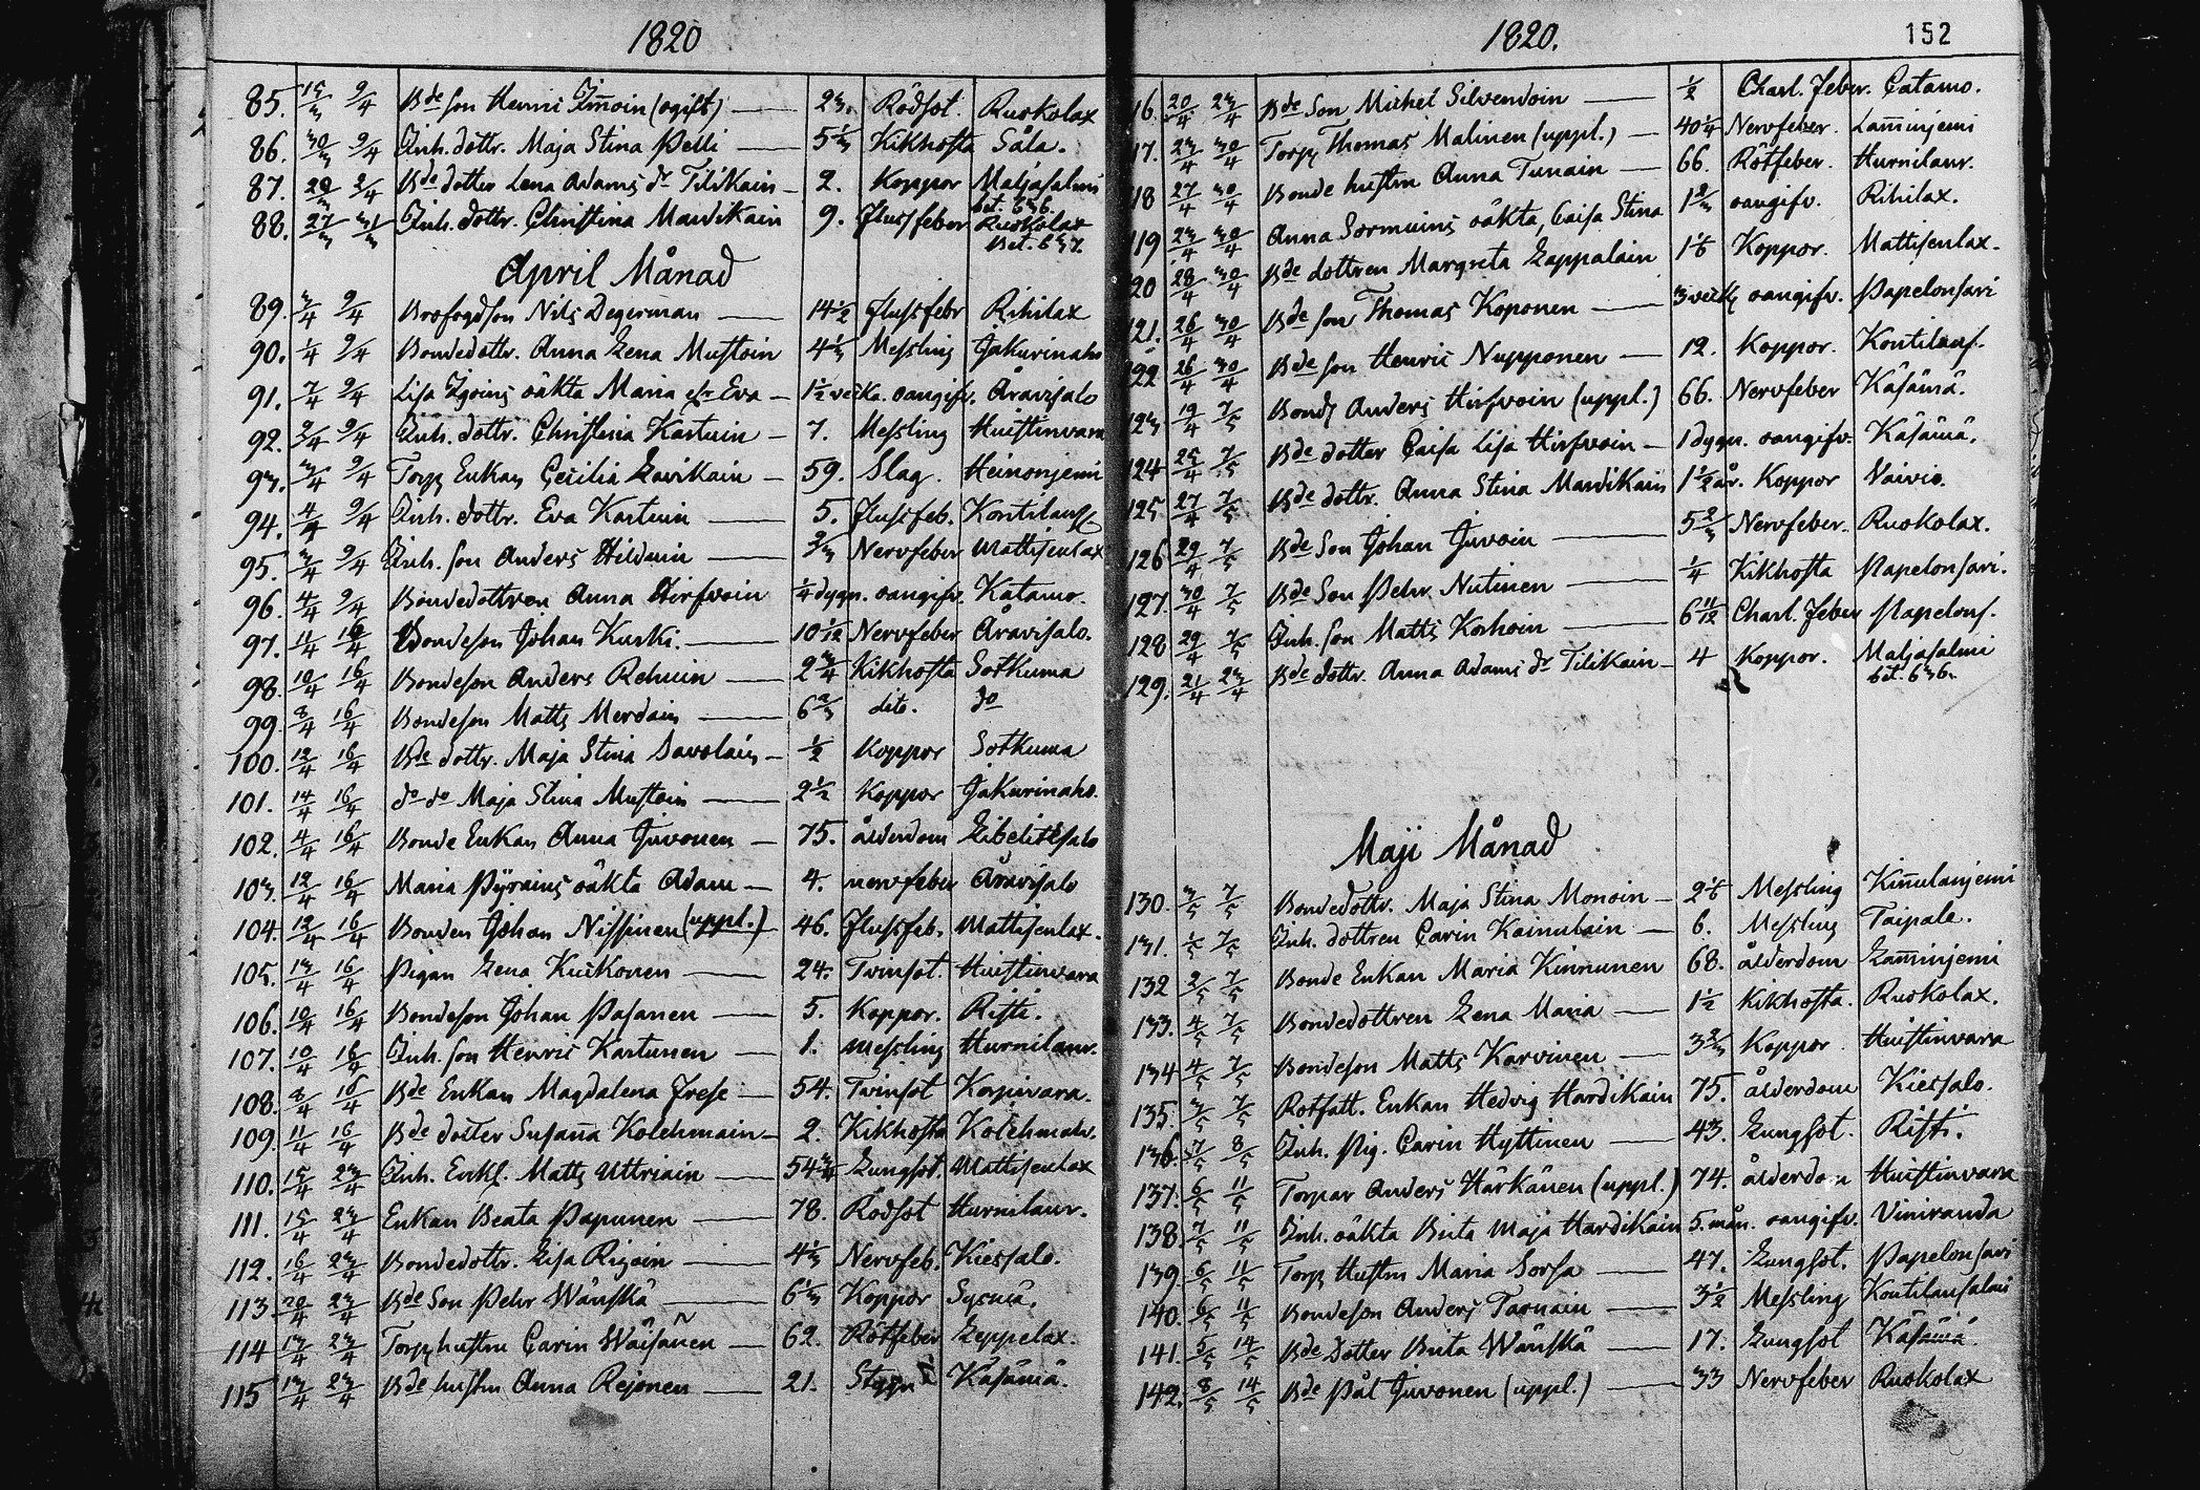 1820
85. 15/3 9/4 Bde son Henric Immoin (ogift) 23. Rödsot. Ruokolax
86. 30/3 9/4 Inh. dottr. Maja Stina Pelli 5 1/3 Kikhosta Såla.
87. 29/3 2/4 Bde dotter Lena Adams dr Tilikain 2. Koppor Maljasalmi
bet. 636.
88. 27/3 31/3 Inh. dottr. Christina Mardikain 9. flussfeber Ruokolax
Bet. 637.
April Månad
89. 3/4 9/4 Brofogdson Nils Degerman 14 1/2 flussfebr Rihilax
90. 1/4 9/4 Bondedottr. Anna Lena Mustoin 4 1/3 Messling Jakurinaho
91. 7/4 9/4 Lisa Igoins oäkta Maria elr Eva 1 1/2 vecka. oangifv. Aravisalo
92. 9/4 9/4 Inh. dottr. Christina Kartuin 7. Messling Huistinvara
93. 3/4 9/4 Torp Enkan Cecilia Lavikain 59. Slag. Heinonjemi
94. 4/4 9/4 Inh. dottr. Eva Kartuin 5. flussfeb. Kontilauss
95. 3/4 9/4 Inh. son Anders Hilduin 2/3 Nervfeber Mattisenlax
96. 4/4 9/4 Bondedottren Anna Hirfvoin 1/4 dygn. oangifv. Katamo.
97. 11/4 16/4 Bondeson Johan Kurki. 10 1/12 Nervfeber Aravisalo.
98. 10/4 16/4 Bondeson Anders Rehuin 2 3/4 Kikhosta Sotkuma
99. 8/4 16/4 Bondeson Matts Merdain 6 2/3 dito. do
100. 12/4 16/4 Bde dottr. Maja Stina Savolain 1/2 Koppor Sotkuma
101. 14/4 16/4 do do Maja Stina Mustoin 2 1/2 Koppor Jakurinaho.
102. 4/4 16/4 Bonde Enkan Anna Juvonen 75. ålderdom Libelitsalo
103. 12/4 16/4 Maria Pyrains oäkta Adam 4. nervfeber Aravisalo
104. 12/4 16/4 Bonden Johan Nissinen (uppl.) 46. flussfeb. Mattisenlax.
105. 13/4 16/4 Pigan Lena Kuikonen 24. Tvinsot. Huistinvara
106. 10/4 16/4 Bondeson Johan Pasanen 5. Koppor. Risti.
107. 10/4 16/4 Inh. son Henric Kartunen 1. messling Hurnilaur.
108. 8/4 16/4 Bde Enkan Magdalena Frese 54. Tvinsot Korpivara.
109. 11/4 16/4 Bde dotter Susanna Kolehmain 2. Kikhosta Kolehmalv.
110. 15/4 23/4 Inh. Enkl. Matts Uttriain 54 3/4 Lungsot. Mattisenlax
111. 15/4 23/4 Enkan Beata Papunen 78. Rödsot Hurnilaur.
112. 16/4 23/4 Bondedottr. Lisa Rigoin 4 1/3 Nervfeb. Kiessalo.
113 20/4 23/4 Bde Son Pehr Wänskä 6 1/3 Koppor Sysmä.
114 13/4 23/4 Torp hustru Carin Wäisänen 62. Rötfeber Leppelax.
115 13/4 23/4 Bde hustru Anna Rejonen 21. Styng Käsämä.
1820. 152
16. 20/4 23/4 Bde Son Michel Silvendoin 1/2 Charl. feber. Catamo.
17. 23/4 30/4 Torp Thomas Malinen (uppl.) 40 1/4 Nervfeber. Lamminjemi
18 27/4 30/4 Bonde hustru Anna Tunain 66. Rötfeber. Hurnilaur.
119 23/4 30/4 Anna Sormuins oäkta, Caisa Stina 1 2/3 oangifv. Rihilax.
20 28/4 30/4 Bde dottren Margreta Lappalain 1 1/6 Koppor. Mattisenlax.
121. 26/4 30/4 Bde son Thomas Koponen 3 veck oangifv. Papelonsari
122 26/4 30/4 Bde son Henric Nupponen 12. Koppor. Kontilaus.
123 19/4 7/5 Bond Anders Hirfvoin (uppl.) 66. Nervfeber Käsämä.
124 25/4 7/5 Bde dotter Caisa Lisa Hirfvoin 1 dygn. oangifv. Käsämä.
125 27/4 7/5 Bde dottr. Anna Stina Mardikain 1 1/2 år. Koppor Vaivio.
126 29/4 7/5 Bde Son Johan Juvoin 5 2/3 Nervfeber. Ruokolax.
127. 30/4 7/5 Bde Son Pehr Nutinen 1/4 Kikhosta Papelonsari.
128 29/4 7/5 Inh. son Matts Korhoin 6 11/12 Charl. feber Papelons.
129. 21/4 23/4 Bde dottr. Anna Adams dr Tilikain 4 Koppor. Maljasalmi
bet. 636.
Maji Månad
130. 3/5 7/5 Bondedottr. Maja Stina Monoin 2 1/6 Messling Kinnulanjemi
131. 1/5 7/5 Inh. dottren Carin Kainulain 6. Messling Taipale.
132 2/5 7/5 Bonde Enkan Maria Kinnunen 68. ålderdom Lamminjemi
133. 4/5 7/5 Bondedottren Lena Maria 1 1/2 Kikhosta. Ruokolax.
134 4/5 7/5 Bondeson Matts Karvinen 3 2/3 Koppor Huistinvara
135. 3/5 7/5 Rotfatt. Enkan Hedvig Hardikain 75. ålderdom Kiessalo.
136. 7/5 8/5 Inh. Pig. Carin Hyttinen 43. Lungsot. Risti.
137. 6/5 11/5 Torpar Anders Härkänen (uppl.) 74. ålderdom Huistinvara
138. 7/5 11/5 Inh. oäkta Brita Maja Hardikain 5. mån. oangifv. Viniranda
139 6/5 11/5 Torp Hustru Maria Sorsa 47. Lungsot. Papelonsari
140. 6/5 11/5 Bondeson Anders Taonain 3 1/2 Messling Kontilausalmi
141. 5/5 14/5 Bde Dotter Brita Wänskä 17. Lungsot Käsämä.
142. 8/5 14/5 Bde Pål Juvonen (uppl.) 33 Nervfeber Ruokolax